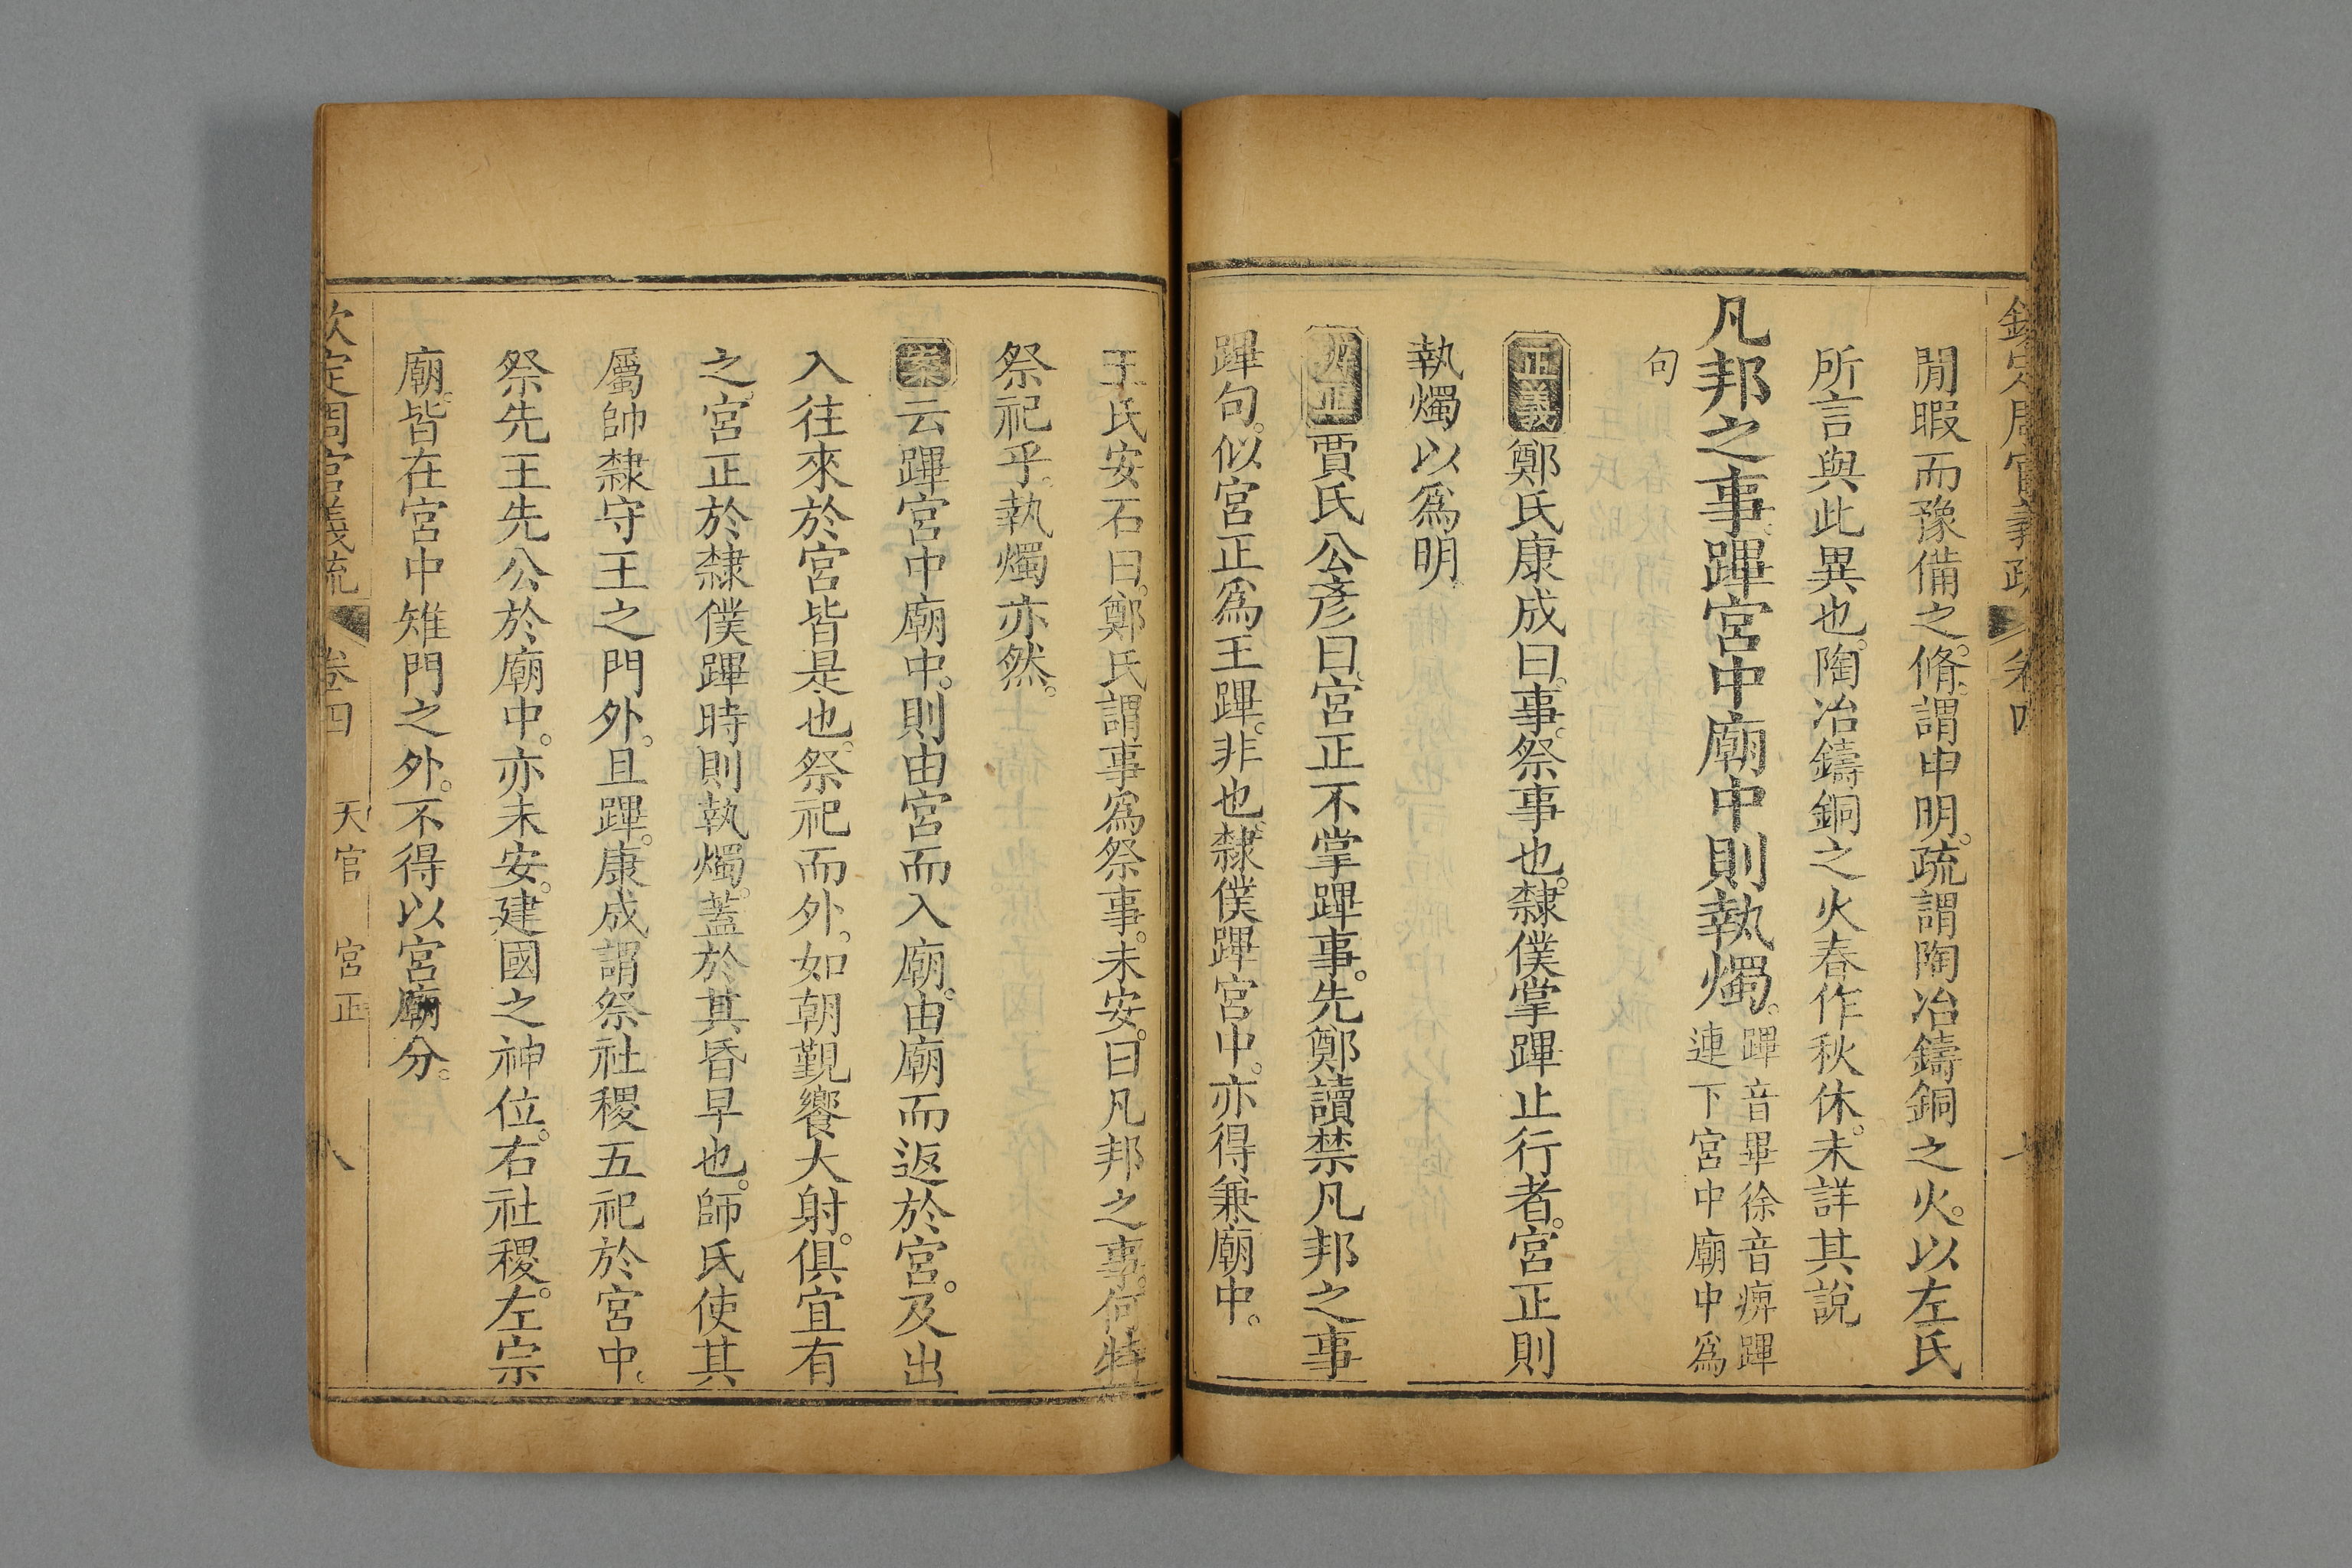 欽定周官義疏 卷四 七
閒暇而豫備之。脩。謂申明。疏謂陶冶鑄銅之火。以左氏
所言與此異也。陶冶鑄銅之火春作秋休。未詳其說
凡邦之事。蹕宮中廟中則執燭。蹕音畢徐音痹蹕
連下宮中廟中爲
句
正義鄭氏康成曰。事。祭事也。隸僕掌蹕止行者。宮正則
執燭以爲明
辨正賈氏公彥曰。宮正不掌蹕事。先鄭讀禁凡邦之事
蹕句。似宮正爲王蹕。非也。隸僕蹕宮中。亦得兼廟中。
王氏安石曰。鄭氏謂事爲祭事。未安。曰凡邦之事。何特
祭祀乎。執燭亦然。
案云蹕宮中廟中。則由宮而入廟。由廟而返於宮。及出
入往來於宮皆是也。祭祀而外。如朝覲饗大射。俱宜有
之。宮正於隸僕蹕時則執燭。蓋於其昏早也。師氏使其
屬帥隸守王之門外。且蹕。康成謂祭社稷五祀於宮中。
祭先王先公於廟中。亦未安。建國之神位。右社稷。左宗
廟。皆在宮中雉門之外。不得以宮廟分。
欽定周官義疏 卷四 天官 宮正 八